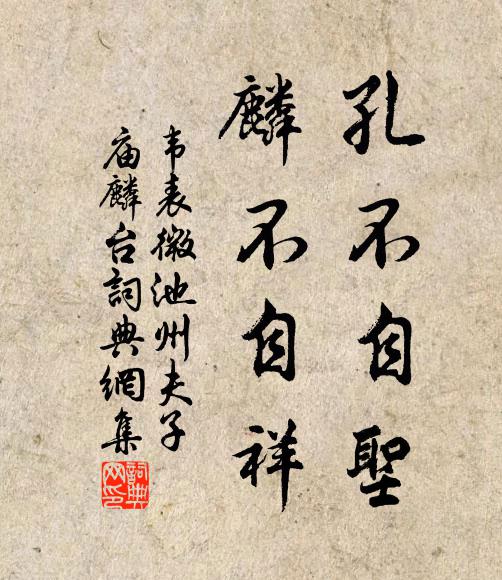 孔不自聖
麟不自祥
韦表微池州夫子
庙麟台詞典網集
詞典
网印